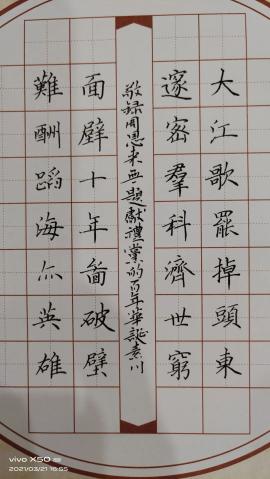 大江歌罷掉頭東
邃密羣科濟世窮
面壁十年啚破壁
難酬蹈海亦英雄
敬録周恩来無題獻禮黨的百年華誕素川
vivo X50
2021/03/21 16:55